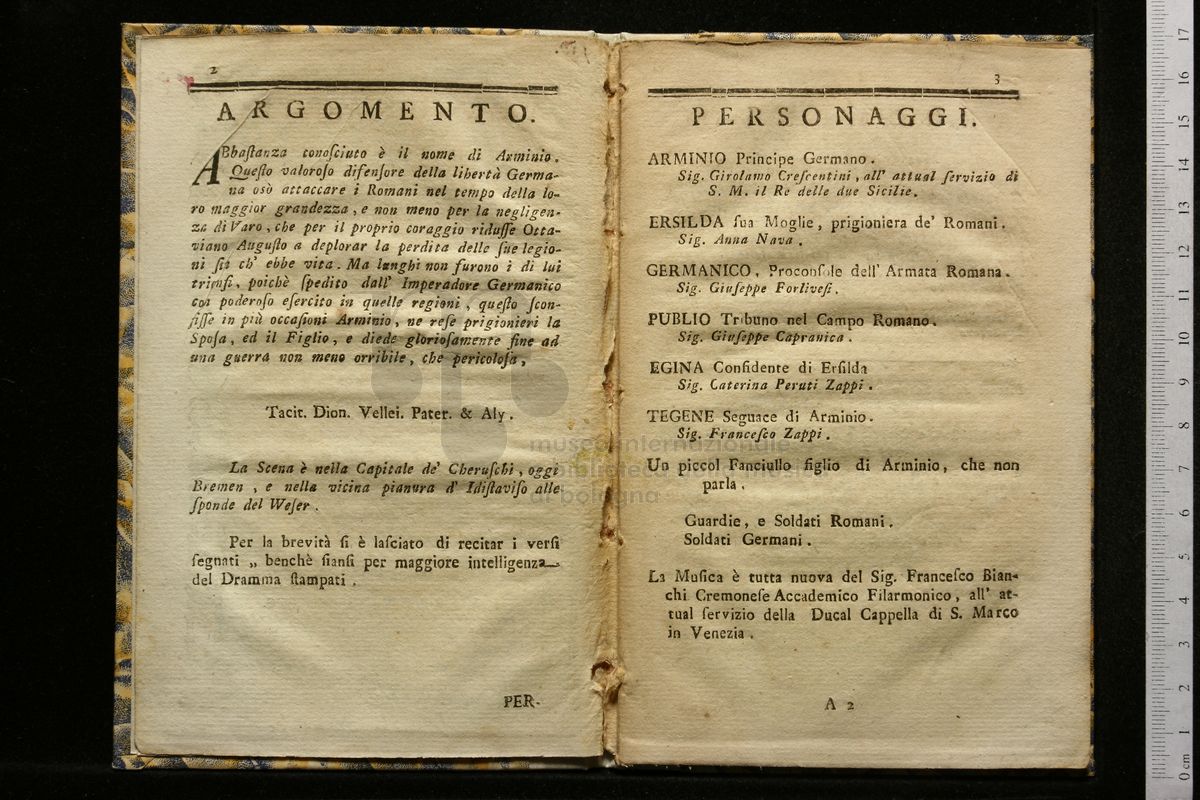 2
ARGOMENTO.
ABbaſtanza conoſciuto è il nome di Arminio.
Queſto valoroſo difenſore della libertà Germa-
na osò attaccare i Romani nel tempo della lo-
ro maggior grandezza, e non meno per la negligen-
za di Varo, che per il proprio coraggio riduſſe Otta-
viano Auguſto a deplorar la perdita delle ſue legio-
ni ſin ch' ebbe vita. Ma lunghi non furono i di lui
trionfi, poichè ſpedito dall' Imperadore Germanico
con poderoſo eſercito in quelle regioni, queſto ſcon-
fiſſe in più occaſioni Arminio, ne reſe prigionieri la
Spoſa, ed il Figlio, e diede glorioſamente fine ad
una guerra non meno orribile, che pericoloſa,
Tacit. Dion. Vellei. Pater. & Aly.
La Scena è nella Capitale de' Cheruſchi, oggi
Bremen, e nella vicina pianura d' Idiſtaviſo alle
ſponde del Weſer.
Per la brevità ſi è laſciato di recitar i verſi
ſegnati „ benchè ſianſi per maggiore intelligenza
del Dramma ſtampati.
PER-
3
PERSONAGGI.
ARMINIO Principe Germano.
Sig. Girolamo Creſcentini, all' attual ſervizio di
S. M. il Re delle due Sicilie.
ERSILDA ſua Moglie, prigioniera de' Romani.
Sig. Anna Nava.
GERMANICO, Proconſole dell' Armata Romana.
Sig. Giuſeppe Forliveſi.
PUBLIO Tribuno nel Campo Romano.
Sig. Giuſeppe Capranica.
EGINA Confidente di Erſilda
Sig. Caterina Peruti Zappi.
TEGENE Seguace di Arminio.
Sig. Franceſco Zappi.
Un piccol Fanciullo figlio di Arminio, che non
parla.
Guardie, e Soldati Romani.
Soldati Germani.
La Muſica è tutta nuova del Sig. Franceſco Bian-
chi Cremoneſe Accademico Filarmonico, all' at-
tual ſervizio della Ducal Cappella di S. Marco
in Venezia.
A 2
museo internazionale
e biblioteca della musica
di bologna
0 cm 1 2 3 4 5 6 7 8 9 10 11 12 13 14 15 16 17